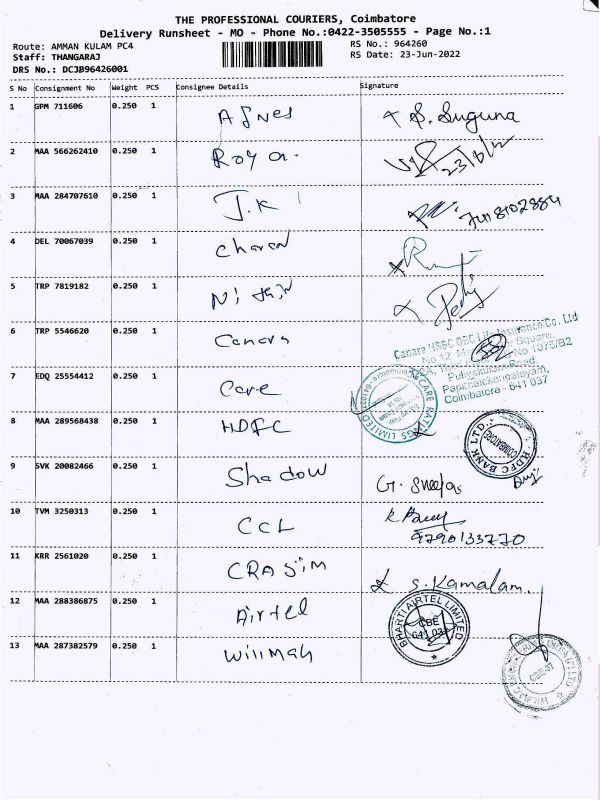 THE PROFESSIONAL COURIERS, Coimbatore
Delivery Runsheet - MO - Phone No.:0422-3505555 - Page No.:1
Route: AMMAN KULAM PC4
RS No.: 964260
Staff: THANGARAJ
RS Date: 23-Jun-2022
DRS No.: DCJB96426001
S No Consignment No Weight PCS Consignee Details Signature
1 GPM 711606 0.250 1 Agnes S. Suguna
2 MAA 566262410 0.250 1 Roya. 23/6/
3 MAA 284707610 0.250 1 J.K
4 DEL 70067039 0.250 1 Charan
5 TRP 7819182 0.250 1 Nithin
6 TRP 5546620 0.250 1 Canara
Canara HSBC OBC Life Insurance Co. Ltd
No 12, Square,
No 1075/B2
Puliyakulam Road,
Pappanaickenpalayam,
Coimbatore - 641 037
7 EDQ 25554412 0.250 1 Care
CARE RATINGS LIMITED
8 MAA 289568438 0.250 1 HDFC
HDFC BANK LTD.
COIMBATORE
9 SVK 20082466 0.250 1 Shadow G.
10 TVM 3250313 0.250 1 CCL
9790133770
11 KRR 2561020 0.250 1 CRASIM S. Kamalam.
12 MAA 288386875 0.250 1 Airtel
BHARTI AIRTEL LIMITED
CBE
13 MAA 287382579 0.250 1